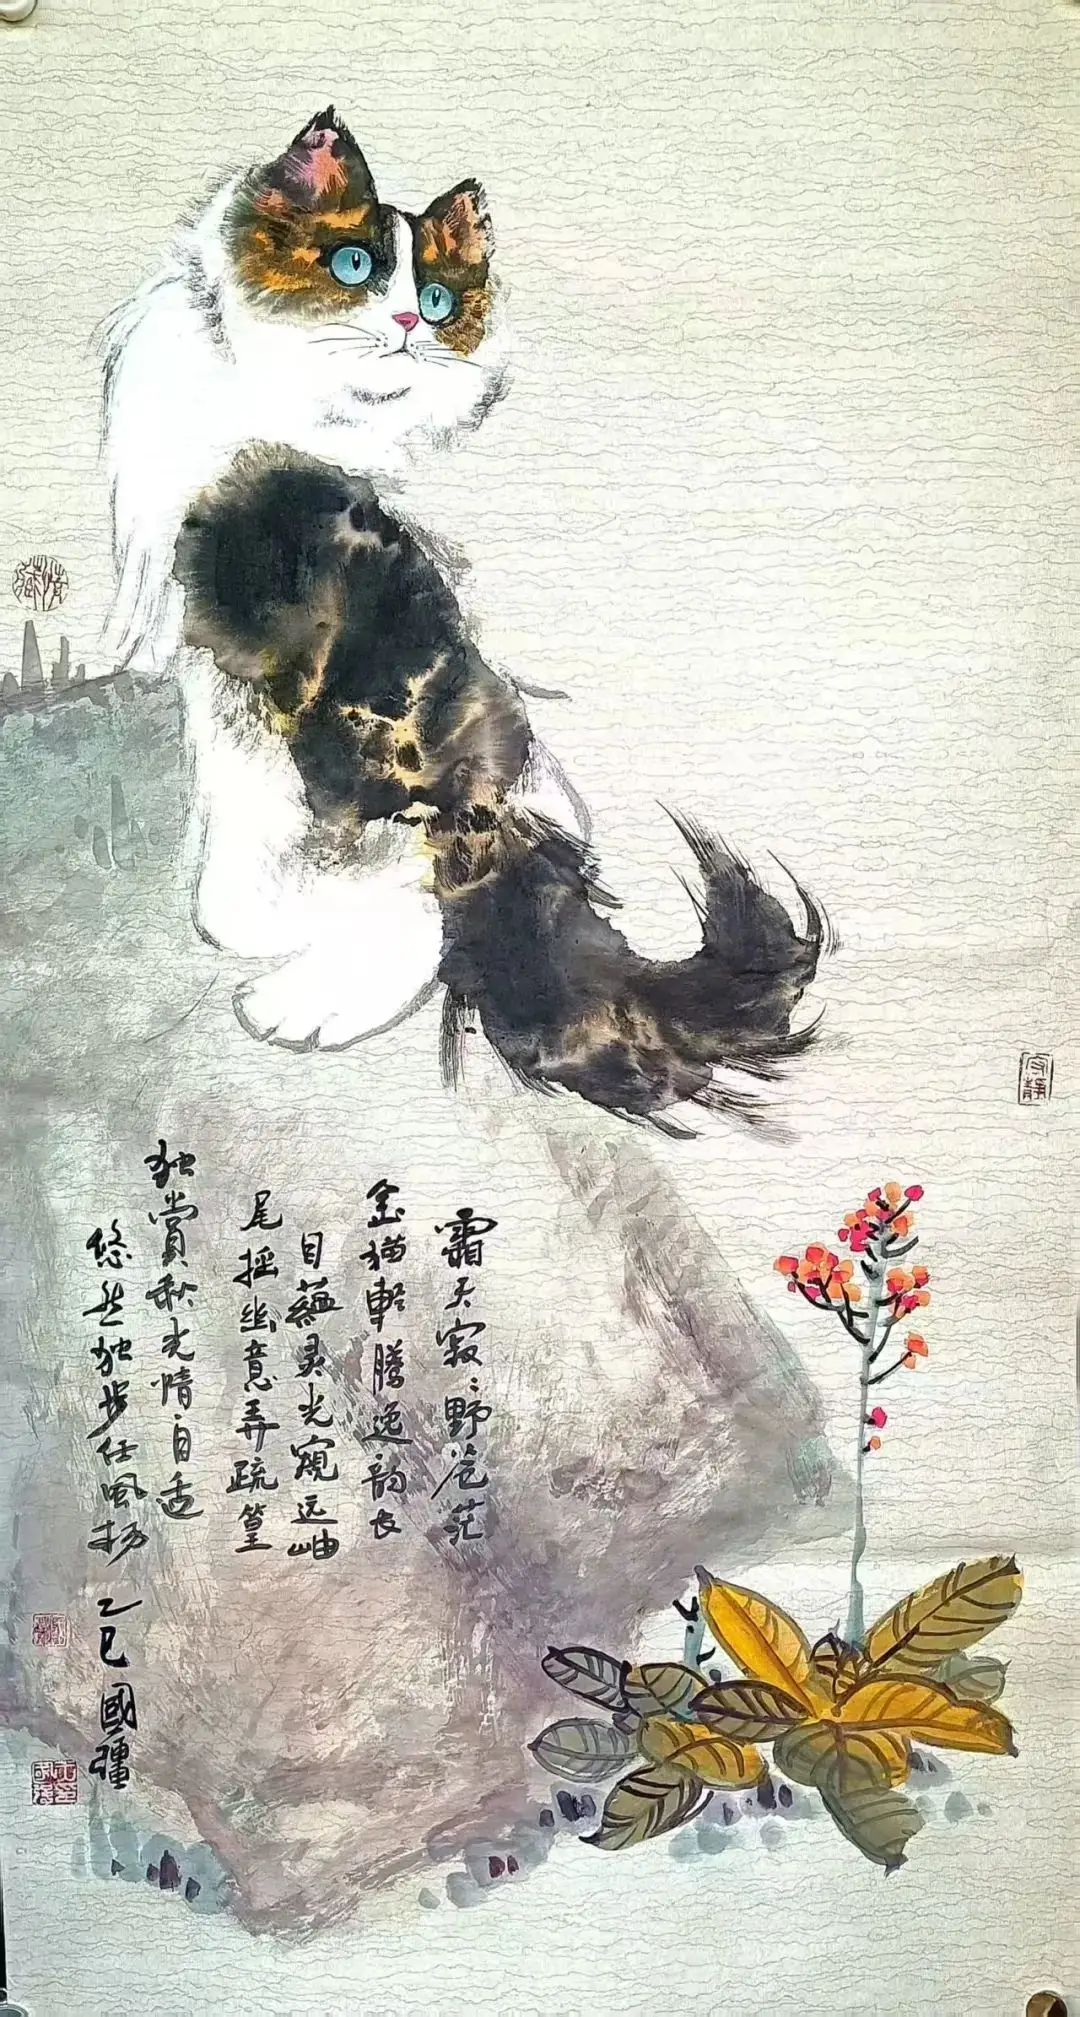 霜天寂:野苍茫
金猫轻腾逸韵长
目蕴灵光窥远岫
尾摇幽意弄疏篁
独赏秋光情自适
悠然独步任風扬
乙巳國疆